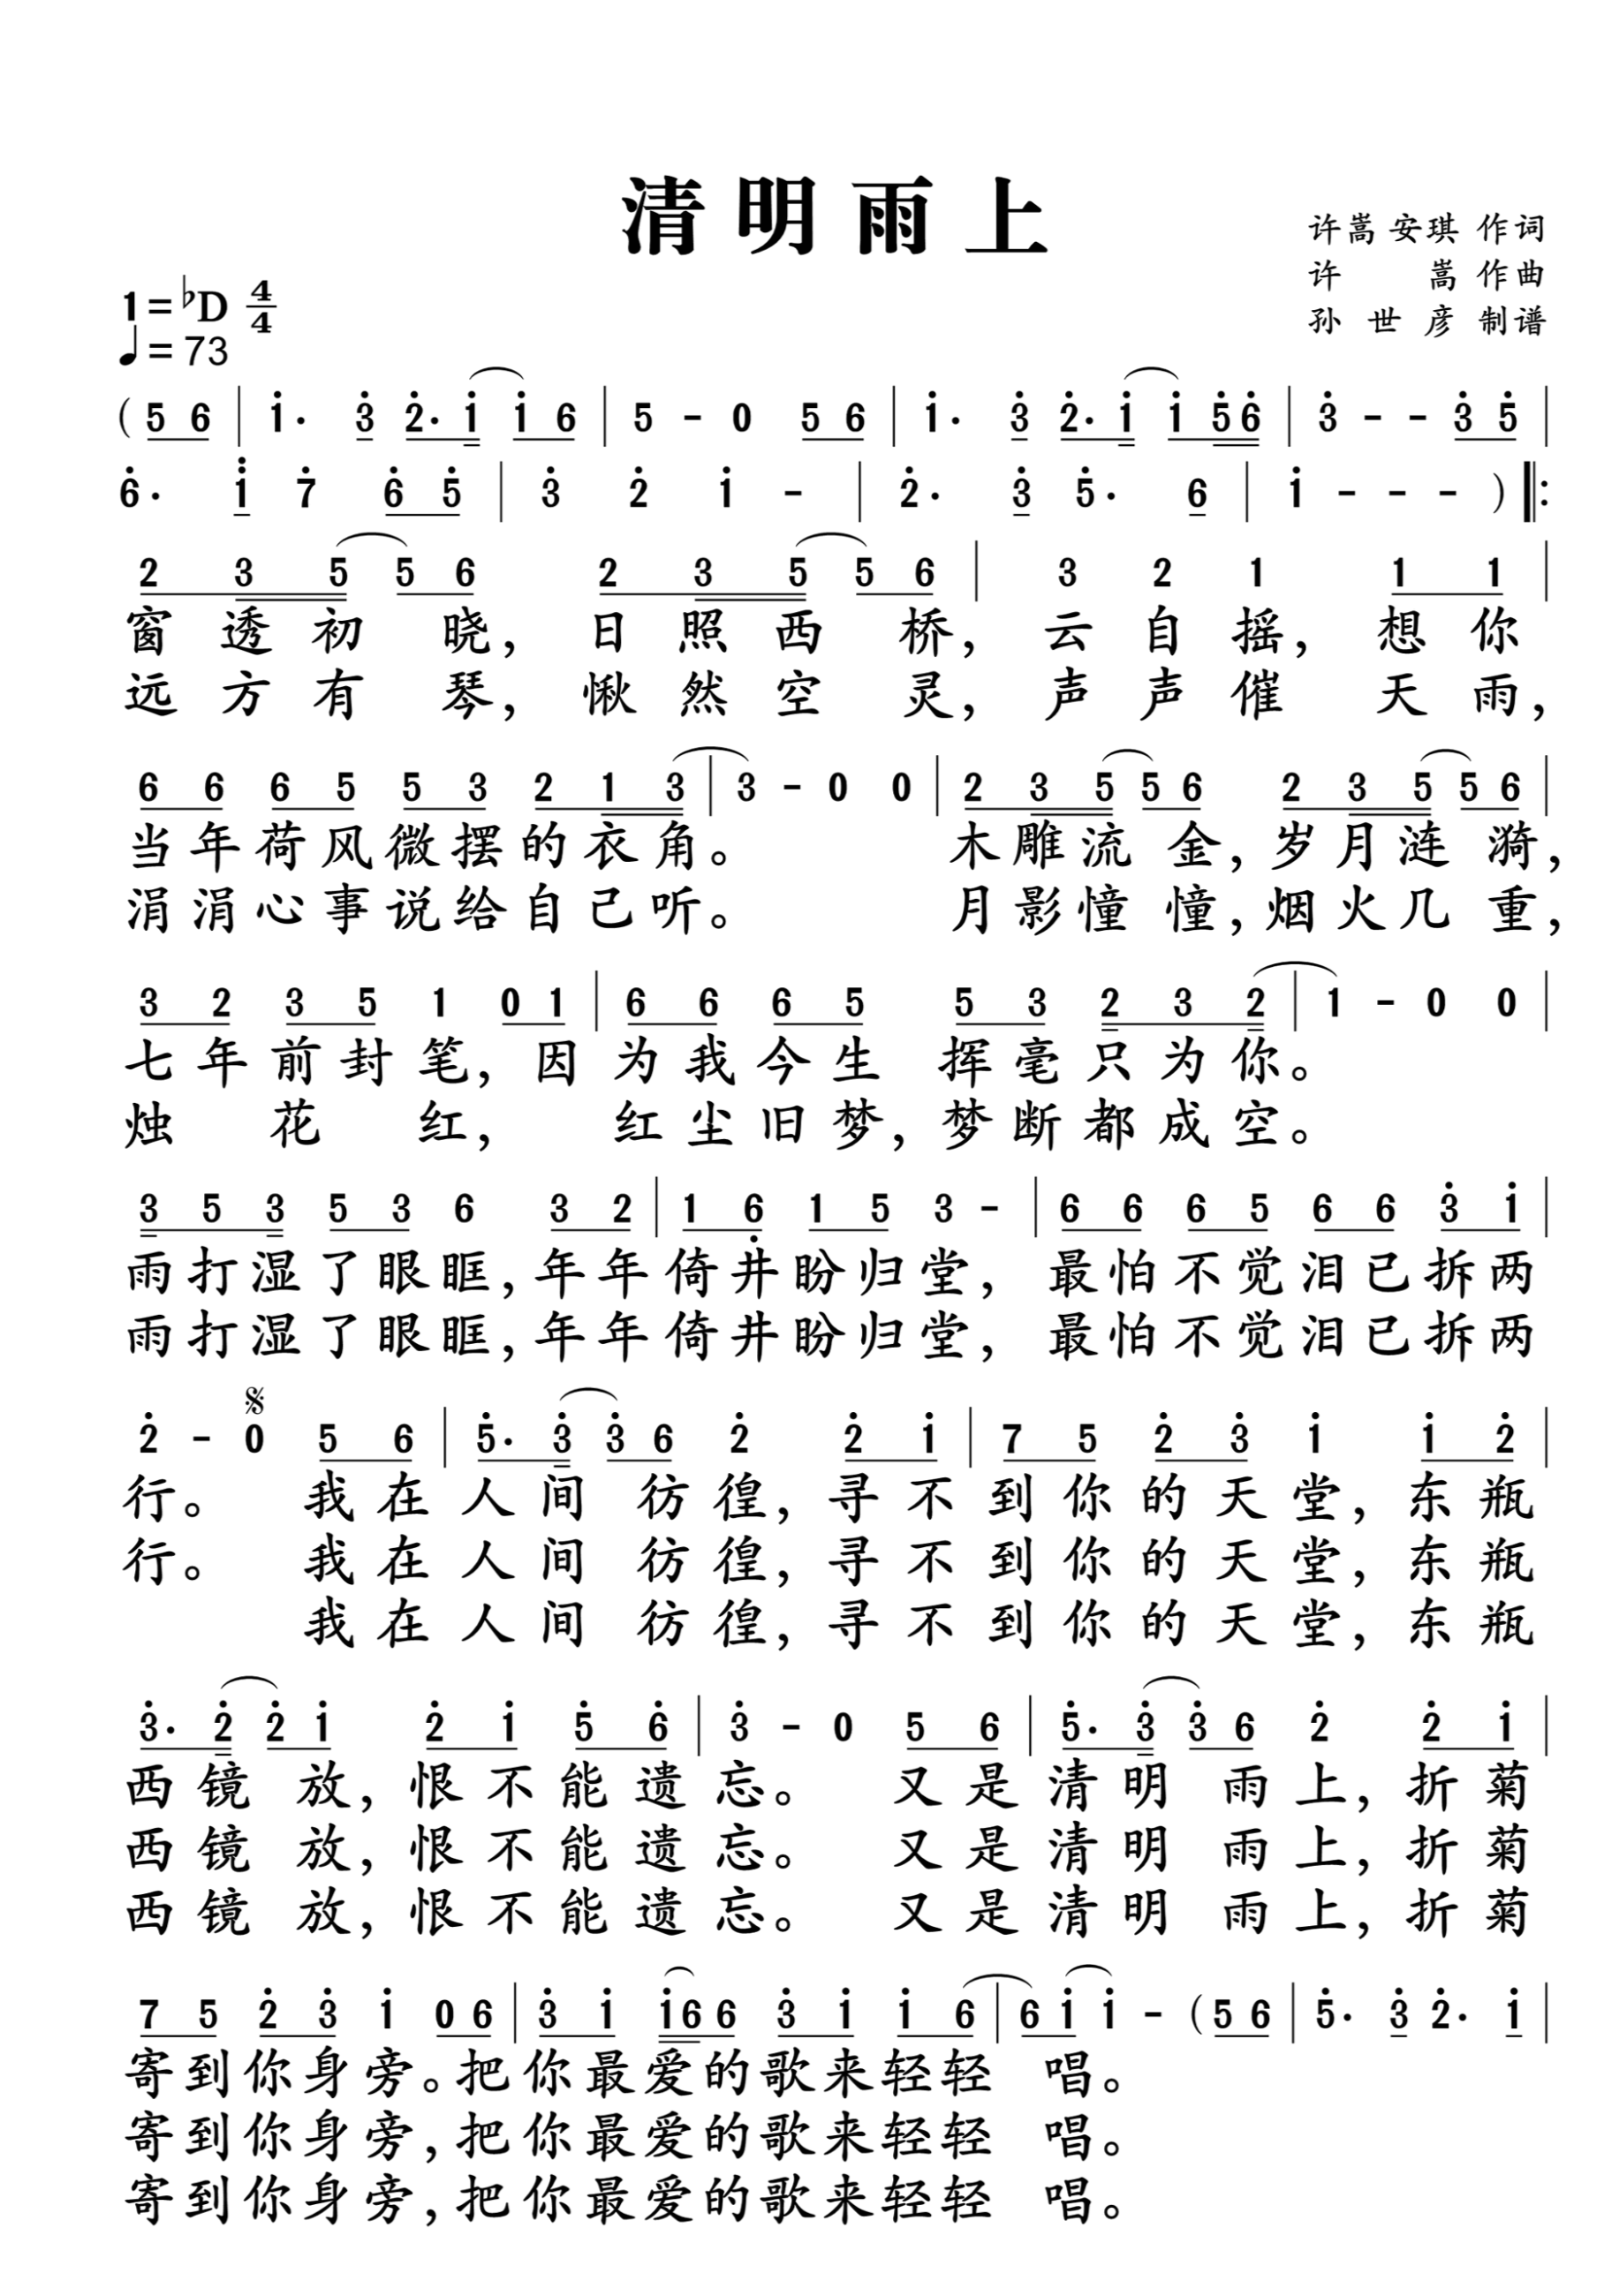 清明雨上
许嵩 安琪 作词
许 嵩 作曲
孙 世 彦 制谱
1=♭D 4/4
♩=73
(5 6 | 1· 3 2· 1 1 6 | 5 - 0 5 6 | 1· 3 2· 1 1 5 6 | 3 - - 3 5 |
6· 1 7 6 5 | 3 2 1 - | 2· 3 5· 6 | 1 - - - ) ‖:
2 3 5 5 6 2 3 5 5 6 | 3 2 1 1 1 |
窗透初 晓, 日照西 桥, 云自摇, 想你
远方有 琴, 愀然空 灵, 声声催 天雨,
6 6 6 5 5 3 2 1 3 | 3 - 0 0 | 2 3 5 5 6 2 3 5 5 6 |
当年荷风微摆的衣角。 木雕流 金, 岁月涟 漪,
涓涓心事说给自己听。 月影憧 憧, 烟火几 重,
3 2 3 5 1 0 1 | 6 6 6 5 5 3 2 3 2 | 1 - 0 0 |
七年前封笔, 因为我今生 挥毫只为你。
烛 花 红, 红尘旧梦, 梦断都成空。
3 5 3 5 3 6 3 2 | 1 6 1 5 3 - | 6 6 6 5 6 6 3 1 |
雨打湿了眼眶, 年年倚井盼归堂, 最怕不觉泪已拆两
雨打湿了眼眶, 年年倚井盼归堂, 最怕不觉泪已拆两
2 - 0 5 6 | 5· 3 3 6 2 2 1 | 7 5 2 3 1 1 2 |
行。 我在人间 彷徨, 寻不到你的天堂, 东瓶
行。 我在人间 彷徨, 寻不到你的天堂, 东瓶
我在人间 彷徨, 寻不到你的天堂, 东瓶
3· 2 2 1 2 1 5 6 | 3 - 0 5 6 | 5· 3 3 6 2 2 1 |
西镜 放, 恨不能遗忘。 又是清明 雨上, 折菊
西镜 放, 恨不能遗忘。 又是清明 雨上, 折菊
西镜 放, 恨不能遗忘。 又是清明 雨上, 折菊
7 5 2 3 1 0 6 | 3 1 1 6 6 3 1 1 6 | 6 1 1 - (5 6 | 5· 3 2· 1 |
寄到你身旁。把你最爱的歌来轻轻 唱。
寄到你身旁, 把你最爱的歌来轻轻 唱。
寄到你身旁, 把你最爱的歌来轻轻 唱。